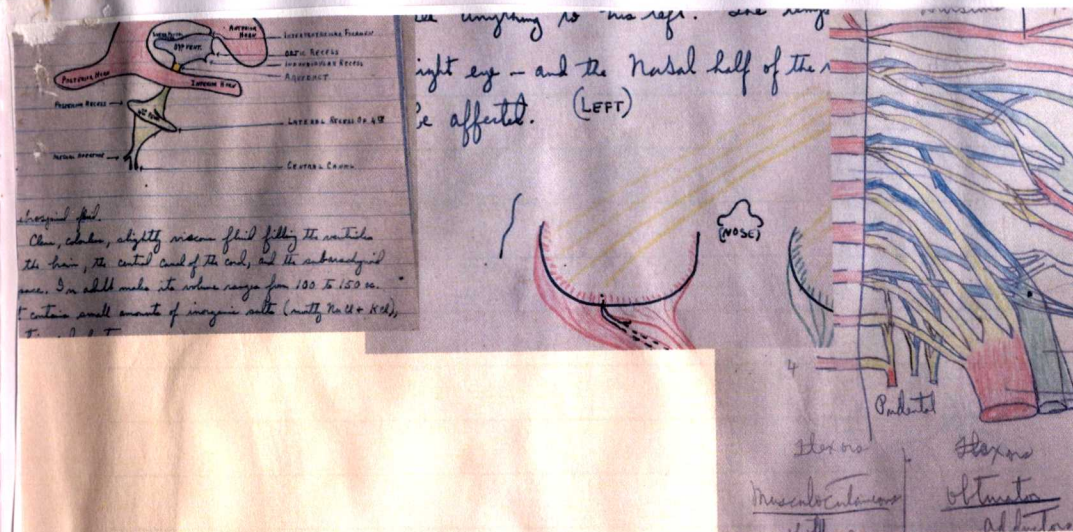 ANTERIOR HORN
INTERVENTRICULAR FORAMEN
3RD VENT.
OPTIC RECESS
INFUNDIBULAR RECESS
AQUEDUCT
POSTERIOR HORN
INFERIOR HORN
POSTERIOR RECESS
LATERAL RECESS OF 4TH
CENTRAL CANAL
fluid.
Clear, colorless, slightly viscous fluid filling the ventricles
the brain, the central canal of the cord, and the subarachnoid
In adult males its volume ranges from 100 to 150 cc.
contains small amounts of inorganic salts (mostly NaCl + KCl),
anything to his left. The
eye - and the Nasal half of the
affected. (LEFT)
(NOSE)
4
Pudental
Flexors
Flexors
Musculocutaneous
Obturator
Adductors